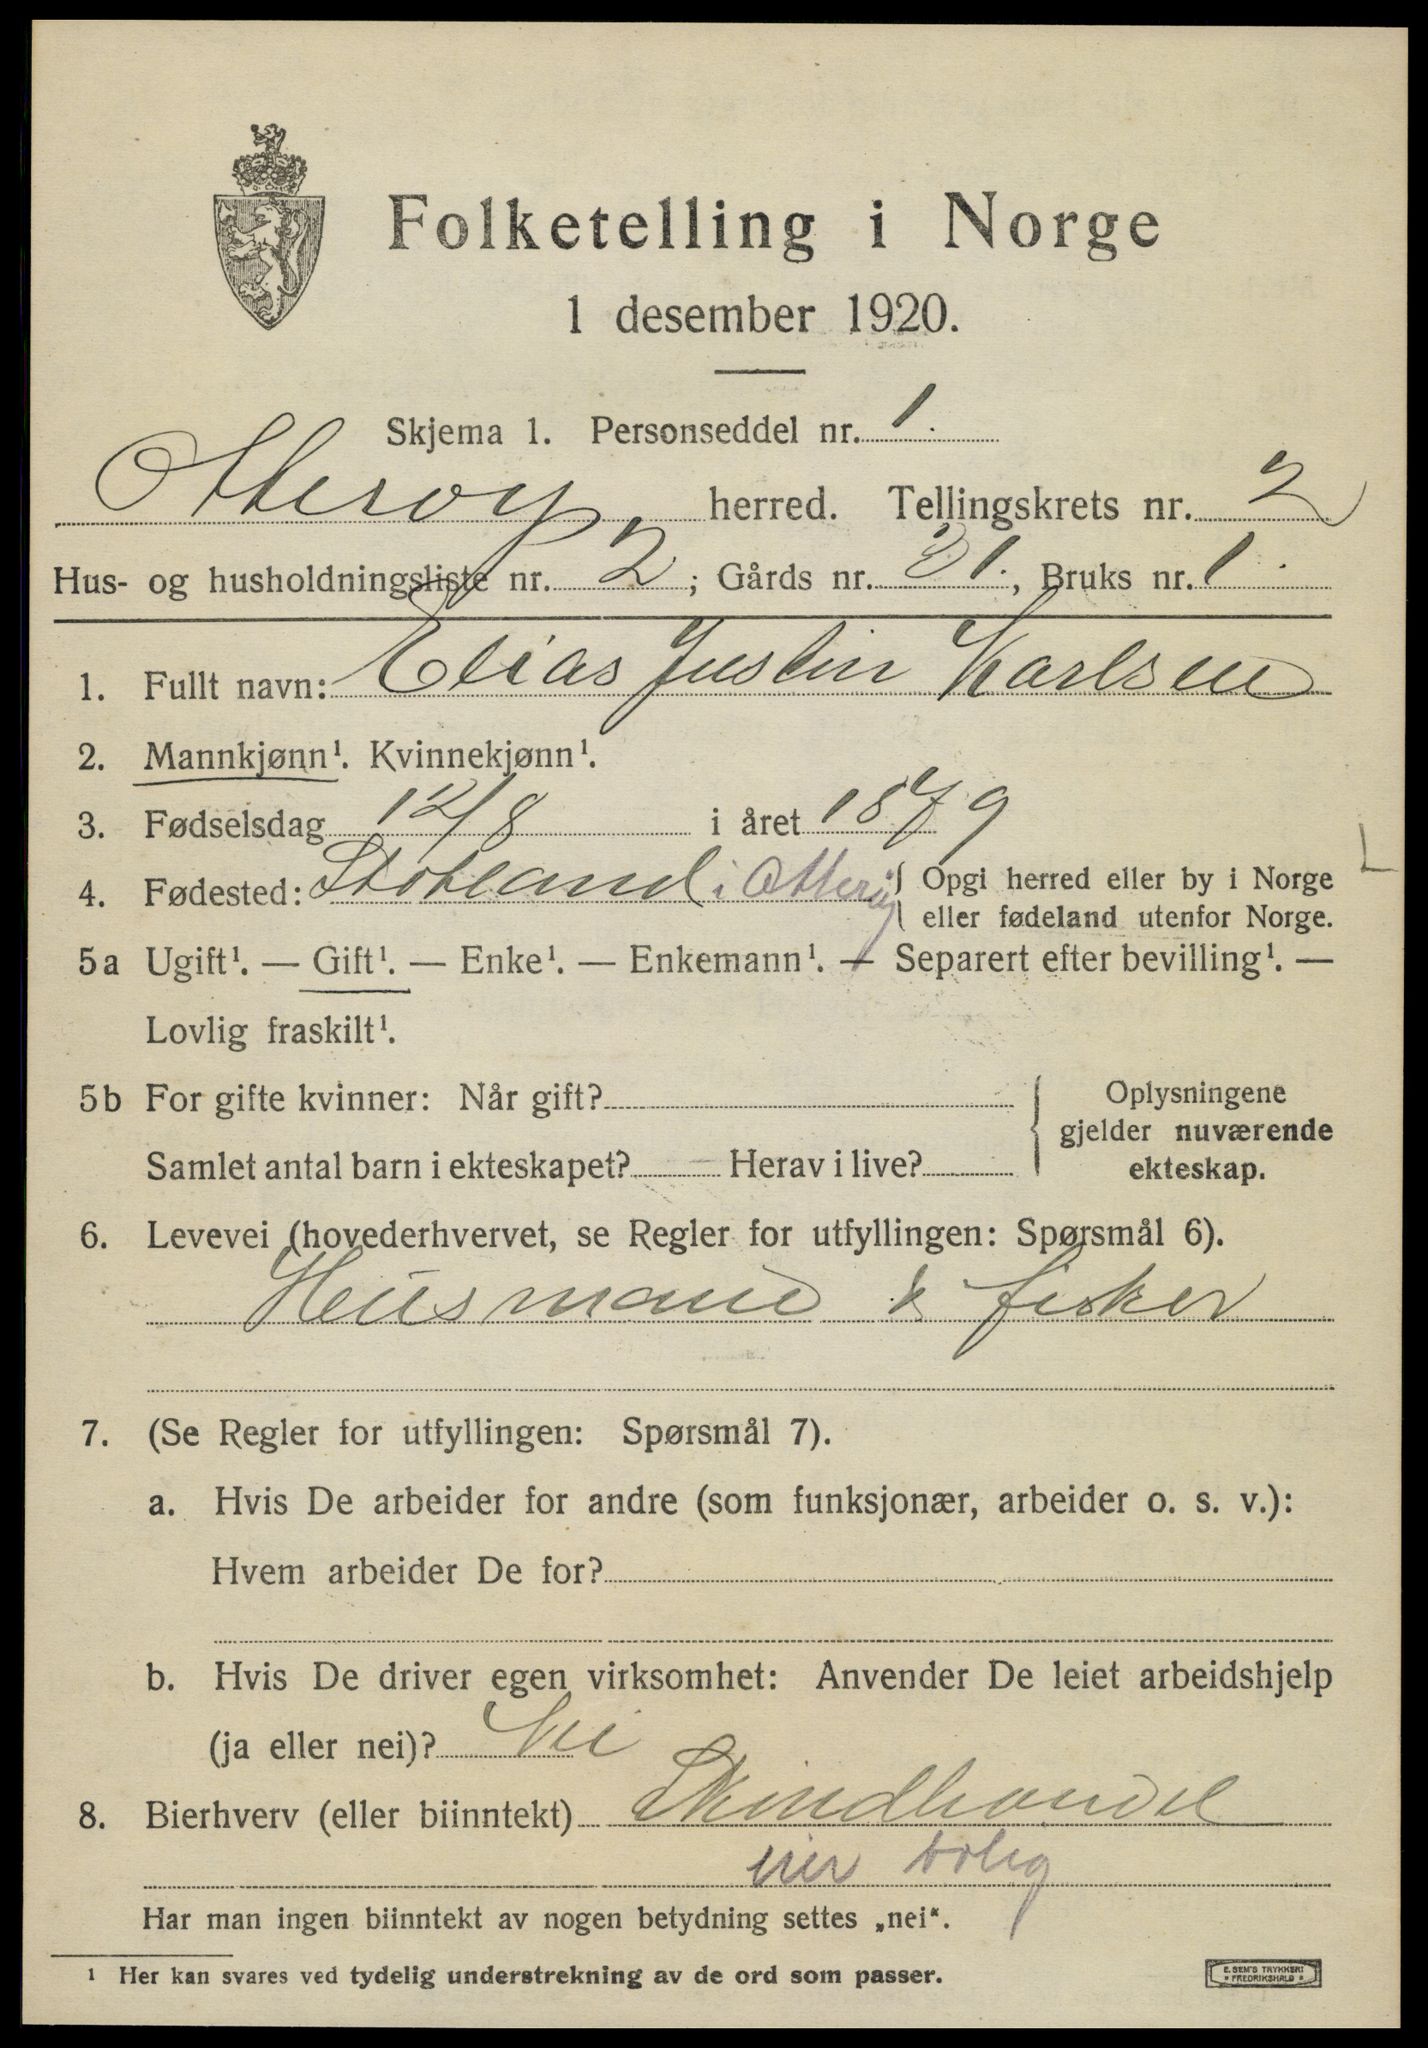 Folketelling i Norge
1 desember 1920.
Skjema 1. Personseddel nr. 1.
Otterøy herred. Tellingskrets nr. 2
Hus- og husholdningsliste nr. 2; Gårds nr. 31., Bruks nr. 1.
1. Fullt navn: Elias Justin Karlsen
2. Mannkjønn¹. Kvinnekjønn¹.
3. Fødselsdag 12/8 i året 1879
4. Fødested: i Otterøy { Opgi herred eller by i Norge
eller fødeland utenfor Norge.
5a Ugift¹. — Gift¹. — Enke¹. — Enkemann¹. — Separert efter bevilling¹. —
Lovlig fraskilt¹.
5b For gifte kvinner: Når gift? { Oplysningene
gjelder nuværende
Samlet antal barn i ekteskapet? Herav i live? ekteskap.
6. Levevei (hovederhvervet, se Regler for utfyllingen: Spørsmål 6).
Husmand & fisker
7. (Se Regler for utfyllingen: Spørsmål 7).
a. Hvis De arbeider for andre (som funksjonær, arbeider o. s. v.):
Hvem arbeider De for?
b. Hvis De driver egen virksomhet: Anvender De leiet arbeidshjelp
(ja eller nei)? Nei
8. Bierhverv (eller biinntekt) Skindhandel
eier bolig
Har man ingen biinntekt av nogen betydning settes „nei“.
¹ Her kan svares ved tydelig understrekning av de ord som passer.
E. SEM'S TRYKKERI
* FREDRIKSHALD *